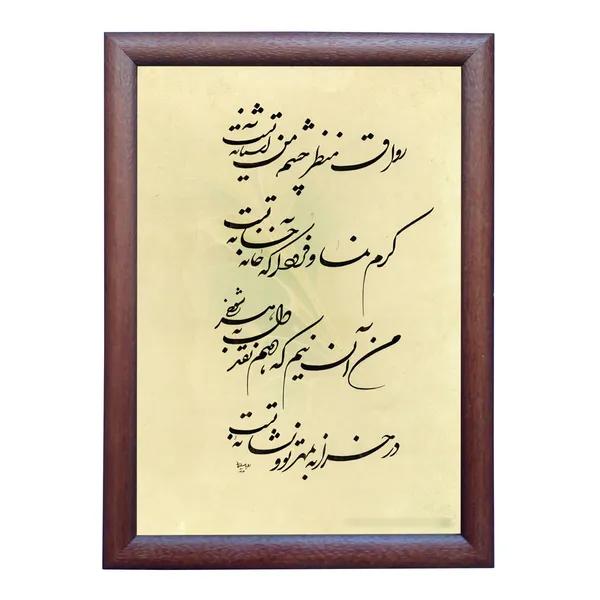 رواق منظر چشم من آشیانه تست
کرم نما و فرود آ که خانه خانه تست
من آن نیم که دهم نقد دل به هر شوخی
در خزانه بمهر تو و نشانه تست